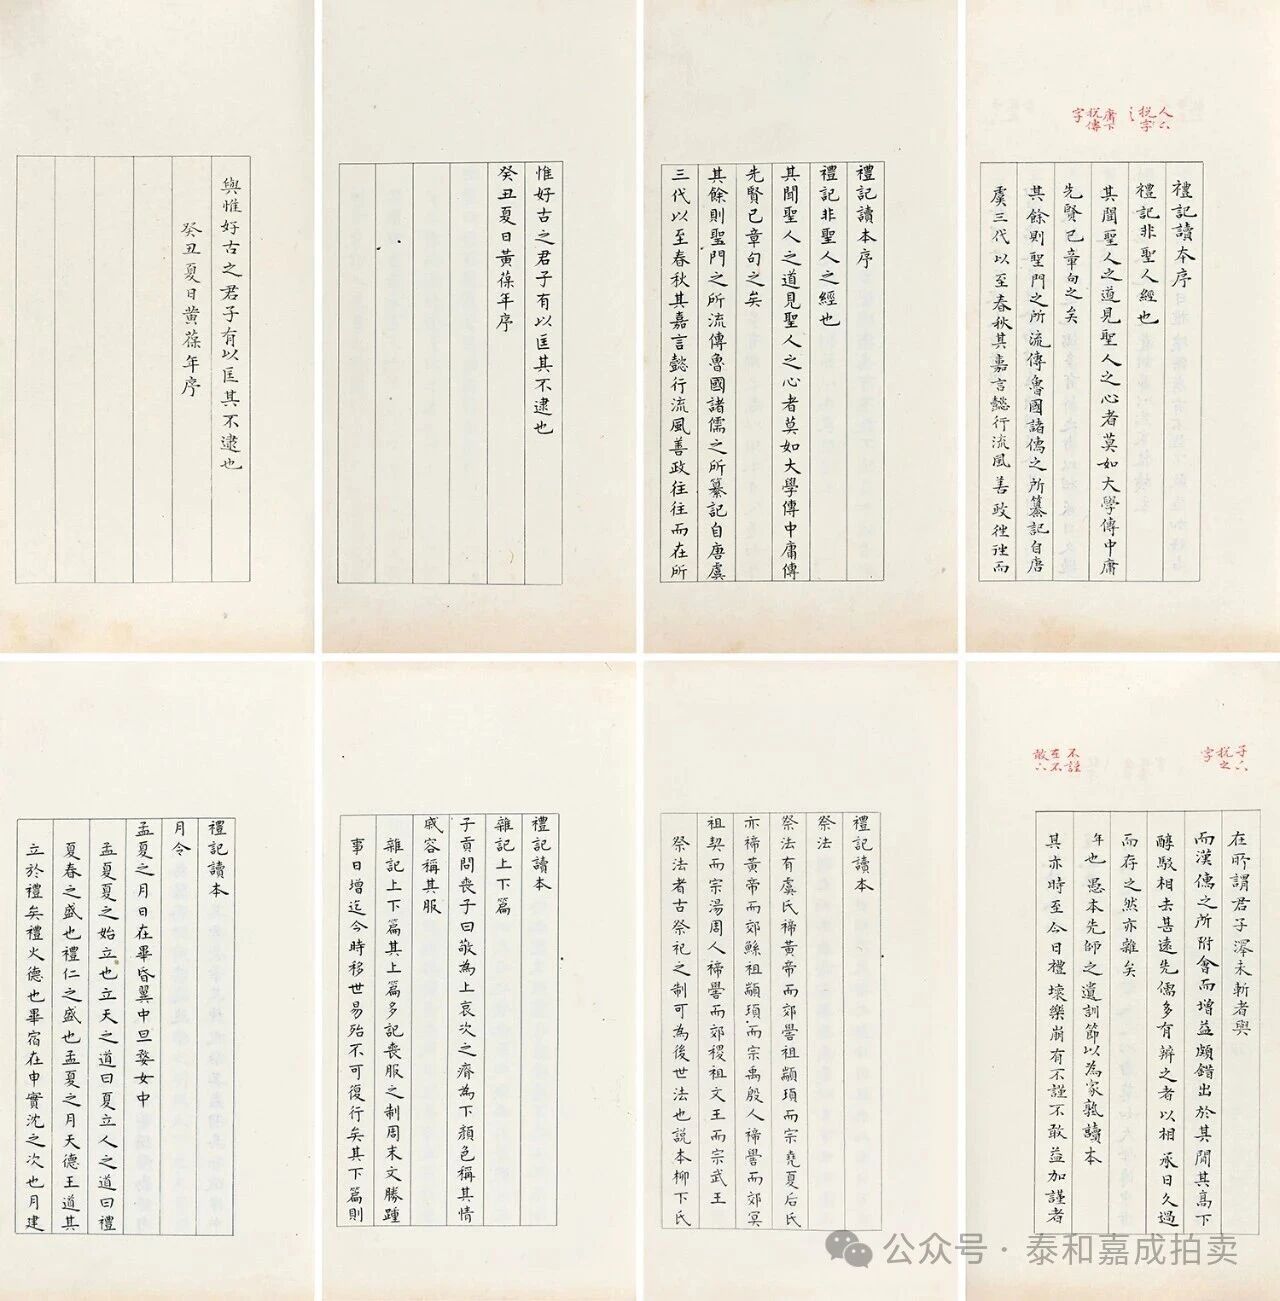 人下
挩字
之
庸下
挩傳
字
禮記讀本序
禮記非聖人經也
其聞聖人之道見聖人之心者莫如大學傳中庸
先賢已章句之矣
其餘則聖門之所流傳魯國諸儒之所纂記自唐
虞三代以至春秋其嘉言懿行流風善政徃徃而
禮記讀本序
禮記非聖人之經也
其聞聖人之道見聖人之心者莫如大學傳中庸傳
先賢已章句之矣
其餘則聖門之所流傳魯國諸儒之所纂記自唐虞
三代以至春秋其嘉言懿行流風善政往往而在所
惟好古之君子有以匡其不逮也
癸丑夏日黃葆年序
與惟好古之君子有以匡其不逮也
癸丑夏日黃葆年序
子下
挩之
字
不謹
在不
敢下
在所謂君子澤未斬者與
而漢儒之所附會而增益頗錯出於其閒其高下
醇駁相去甚遠先儒多有辨之者以相承日久過
而存之然亦難矣
年也愚本先師之遺訓節以為家塾讀本
其亦時至今日禮壞樂崩有不謹不敢益加謹者
禮記讀本
祭法
祭法有虞氏禘黃帝而郊嚳祖顓頊而宗堯夏后氏
亦禘黃帝而郊鯀祖顓頊而宗禹殷人禘嚳而郊冥
祖契而宗湯周人禘嚳而郊稷祖文王而宗武王
祭法者古祭祀之制可為後世法也說本柳下氏
禮記讀本
雜記上下篇
子貢問喪子曰敬為上哀次之瘠為下顏色稱其情
戚容稱其服
雜記上下篇其上篇多記喪服之制周末文勝踵
事日增迄今時移世易殆不可復行矣其下篇則
禮記讀本
月令
孟夏之月日在畢昏翼中旦婺女中
孟夏夏之始立也立天之道曰夏立人之道曰禮
夏春之盛也禮仁之盛也孟夏之月天德王道其
立於禮矣禮火德也畢宿在申實沈之次也月建
公众号·泰和嘉成拍卖